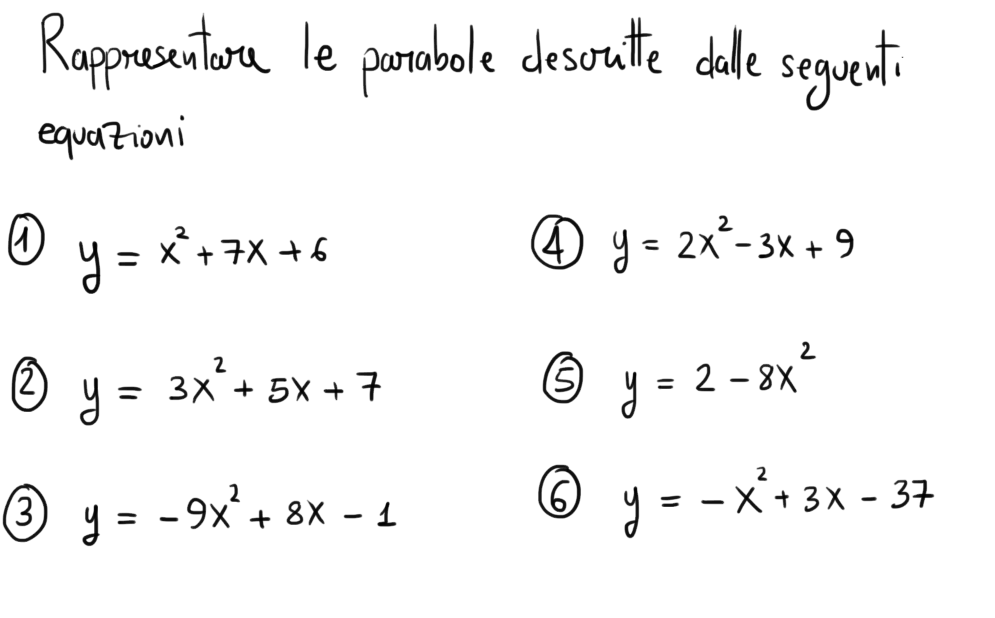 Rappresentare le parabole descritte dalle seguenti
equazioni
① y = x² + 7x + 6
② y = 3x² + 5x + 7
③ y = -9x² + 8x - 1
④ y = 2x² - 3x + 9
⑤ y = 2 - 8x²
⑥ y = -x² + 3x - 37